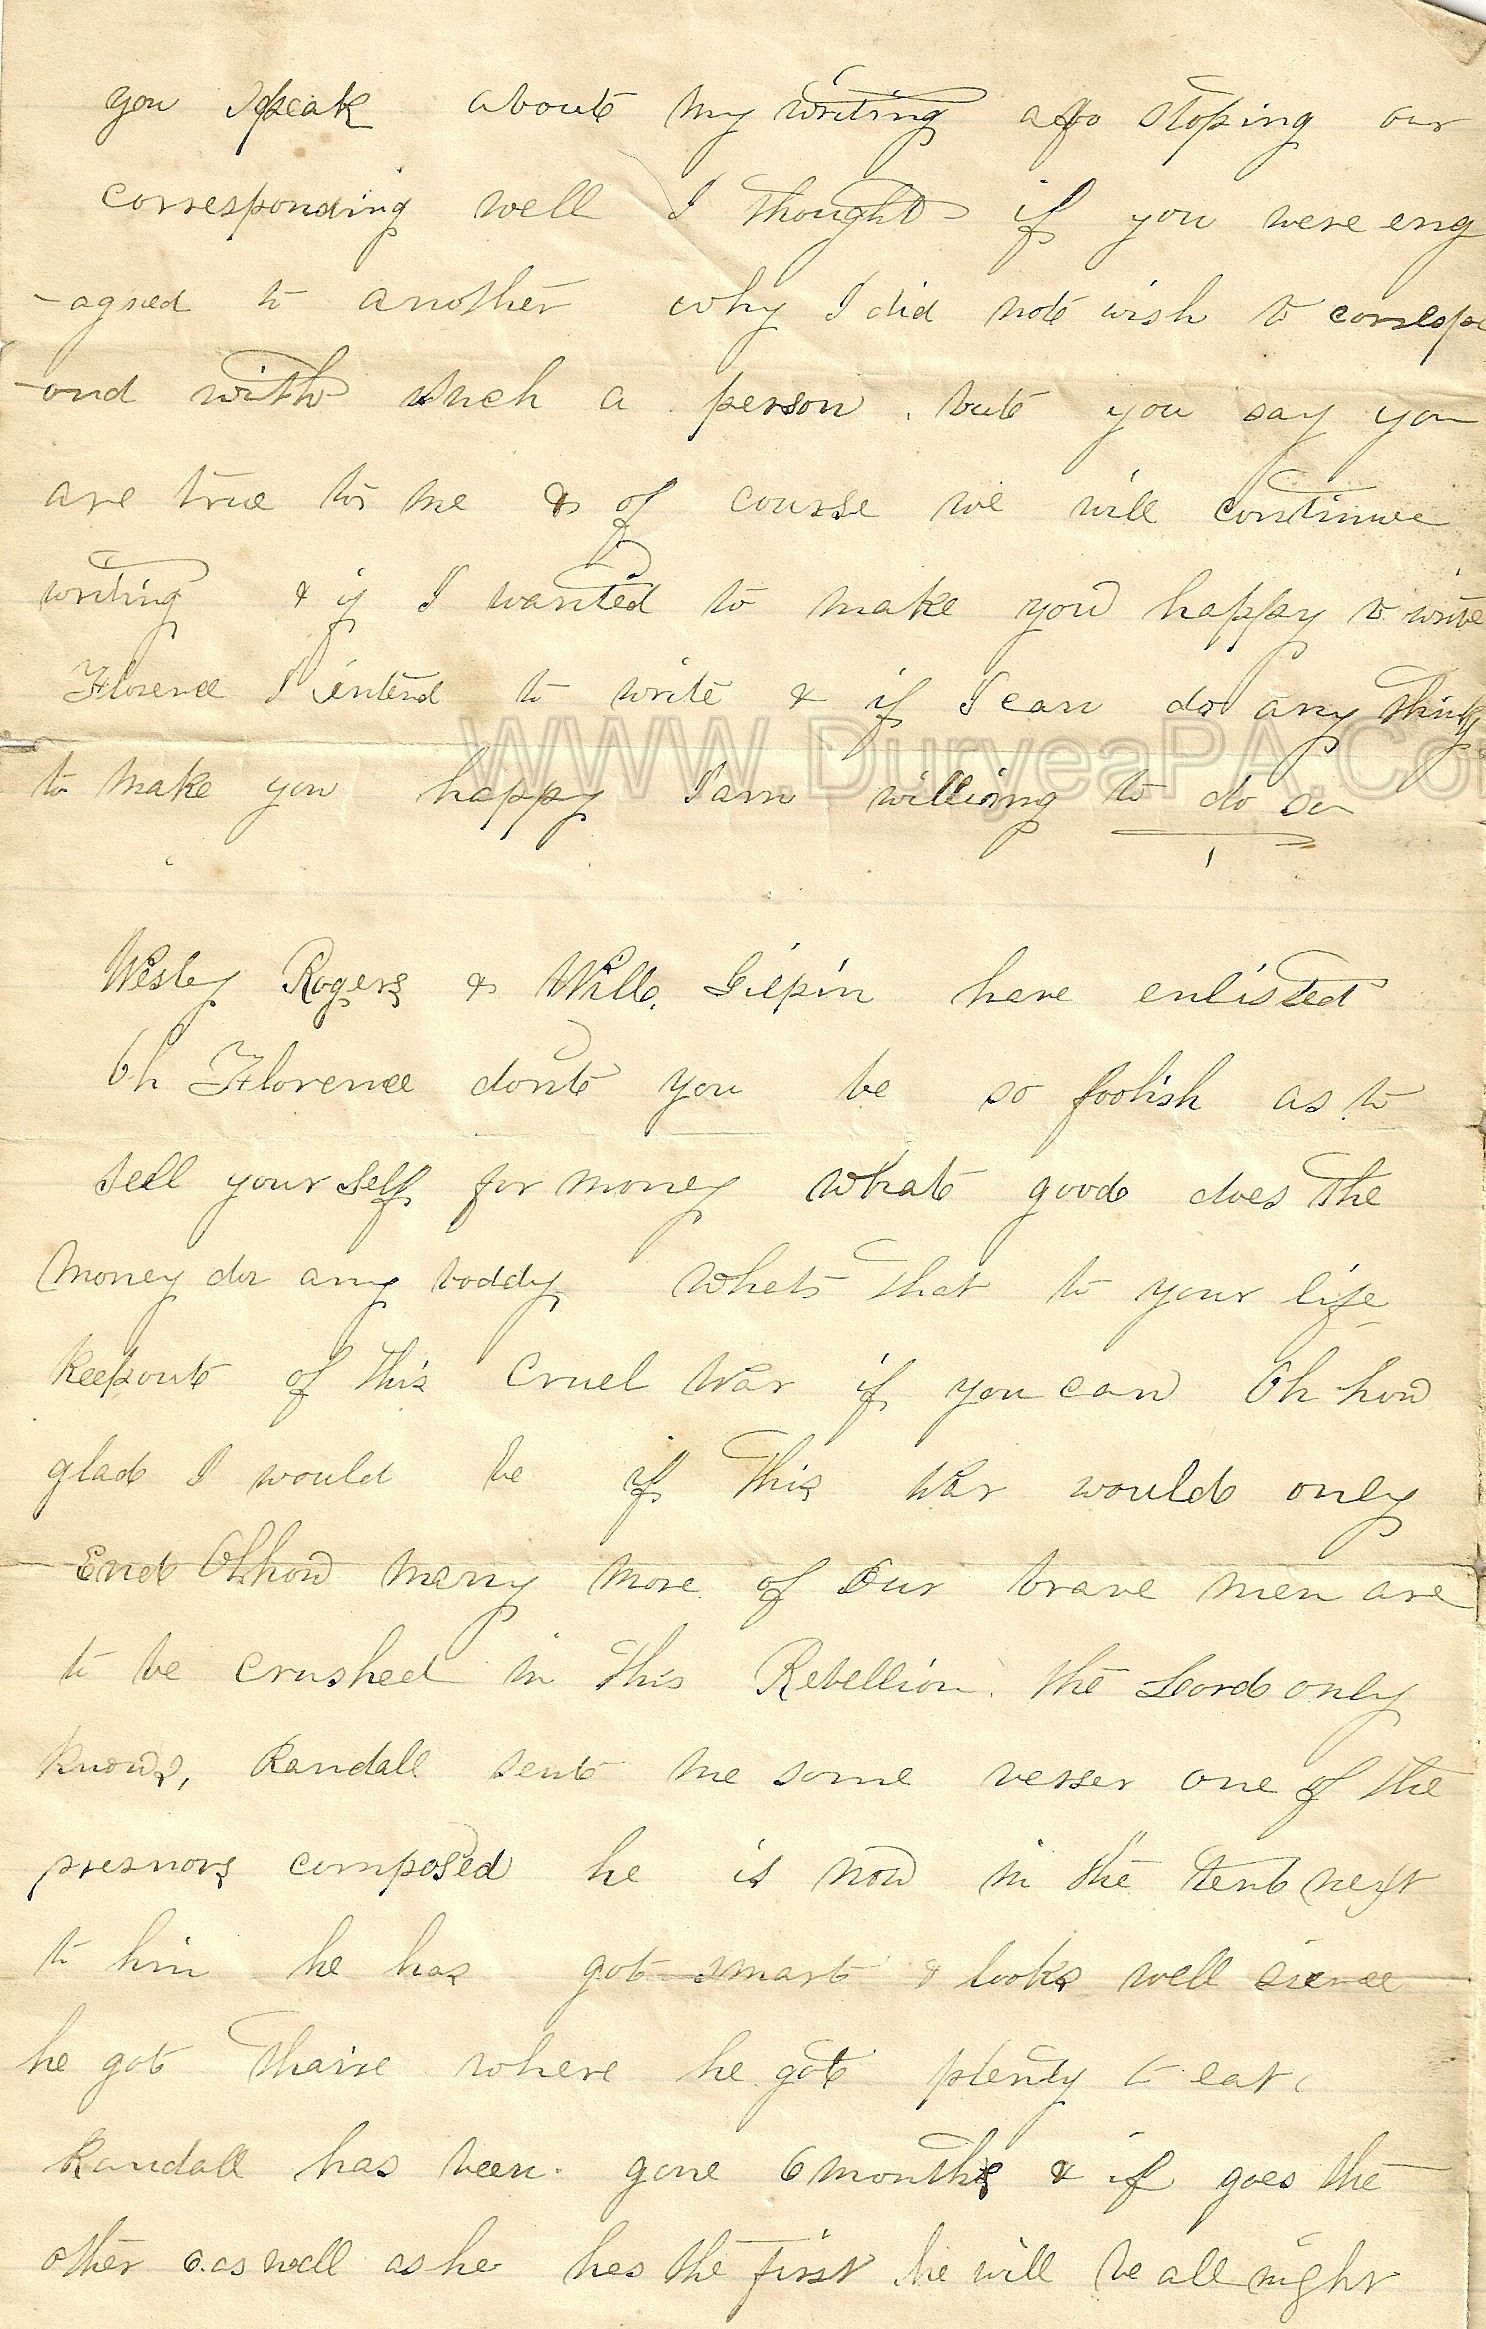 you speak aboute my writing afo stoping our
corresponding well I thought if you were eng
-agned to another why I did not wish to correspo
-ond with such a person. bute you say you
are true to me & of course we will continuee
writing & if I wanted to make you happy to write
Florence I intend to write & if I can do any thing
WWW.DuryeaPA.Co
to make you happy I am willing to do so
Wesley Rogers & Will. Gilpin have enlisted
Oh Florence donte you be so foolish as to
sell your self for money whate good does the
money do any boddy whets that to your life
Keepoute of this Cruel War if you can Oh how
glad I would be if this War would only
End Oh how many more of Our brave men are
to be crushed in this Rebellion. the Lord only
knows, Randall sent me some verser one of the
presnors composed he is now in the tent next
to him he has got smart & looks well sience
he got thaire where he got plenty to eat.
Randall has been gone 6 months & if goes the
other 6. as well as he hes the first he will be all right